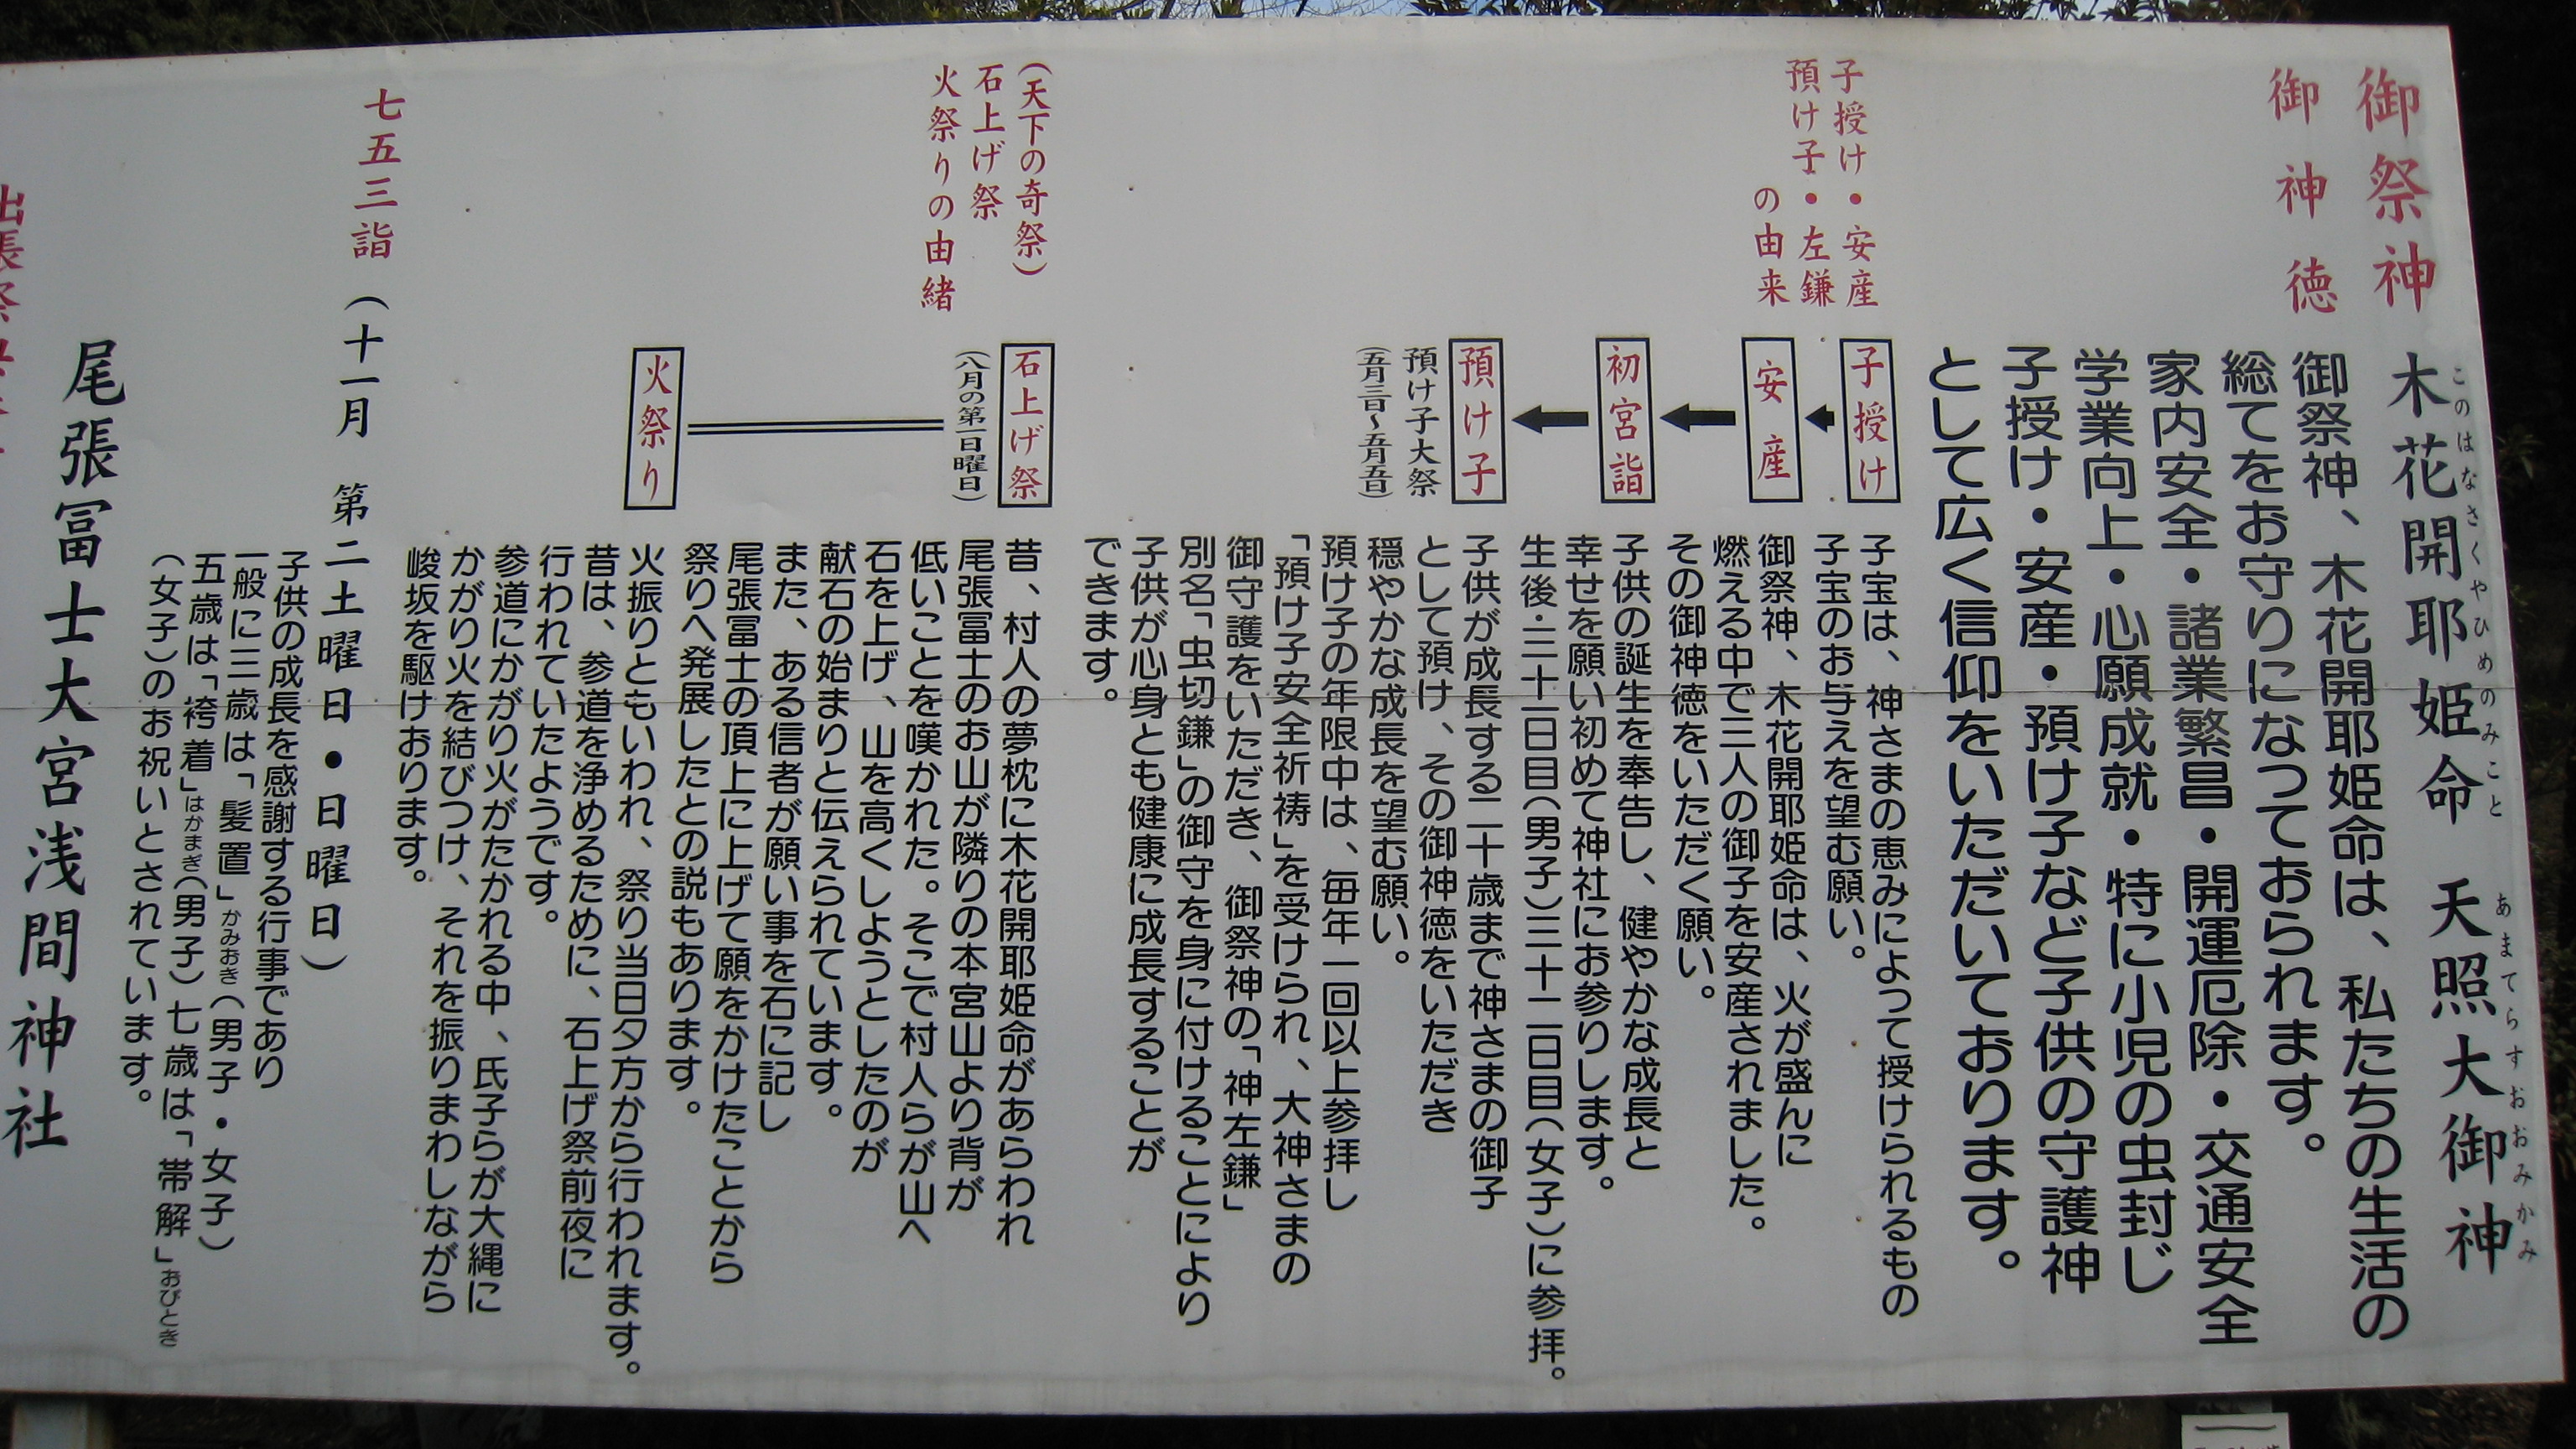 御祭神
木花開耶姫命 天照大御神
このはなさくやひめのみこと あまてらすおおみかみ
御神徳
御祭神、木花開耶姫命は、私たちの生活の
総てをお守りになっておられます。
家内安全・諸業繁昌・開運厄除・交通安全
学業向上・心願成就・特に小児の虫封じ
子授け・安産・預け子など子供の守護神
として広く信仰をいただいております。
子授け・安産
預け子・左鎌
の由来
子授け
子宝は、神さまの恵みによって授けられるもの
子宝のお与えを望む願い。
安産
御祭神、木花開耶姫命は、火が盛んに
燃える中で三人の御子を安産されました。
その御神徳をいただく願い。
初宮詣
子供の誕生を奉告し、健やかな成長と
幸せを願い初めて神社にお参りします。
生後・三十一日目(男子)三十二日目(女子)に参拝。
預け子
預け子大祭
(五月三日~五月五日)
子供が成長する二十歳まで神さまの御子
として預け、その御神徳をいただき
穏やかな成長を望む願い。
預け子の年限中は、毎年一回以上参拝し
「預け子安全祈祷」を受けられ、大神さまの
御守護をいただき、御祭神の「神左鎌」
別名「虫切鎌」の御守を身に付けることにより
子供が心身とも健康に成長することが
できます。
(天下の奇祭)
石上げ祭
火祭りの由緒
石上げ祭
(八月の第一日曜日)
昔、村人の夢枕に木花開耶姫命があらわれ
尾張冨士のお山が隣りの本宮山より背が
低いことを嘆かれた。そこで村人らが山へ
石を上げ、山を高くしようとしたのが
献石の始まりと伝えられています。
また、ある信者が願い事を石に記し
尾張冨士の頂上に上げて願をかけたことから
祭りへ発展したとの説もあります。
火祭り
火振りともいわれ、祭り当日夕方から行われます。
昔は、参道を浄めるために、石上げ祭前夜に
行われていたようです。
参道にかがり火がたかれる中、氏子らが大縄に
かがり火を結びつけ、それを振りまわしながら
峻坂を駆けおります。
七五三詣 (十一月 第二土曜日・日曜日)
子供の成長を感謝する行事であり
一般に三歳は「髪置」かみおき(男子・女子)
五歳は「袴着」はかまぎ(男子)七歳は「帯解」おびとき
(女子)のお祝いとされています。
尾張冨士大宮浅間神社